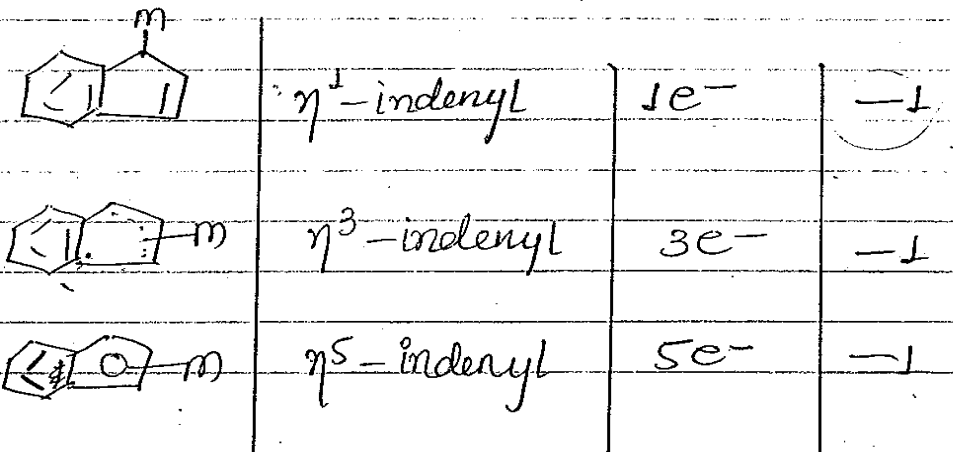 m
η¹-indenyl 1e⁻ -1
m η³-indenyl 3e⁻ -1
m η⁵-indenyl 5e⁻ -1